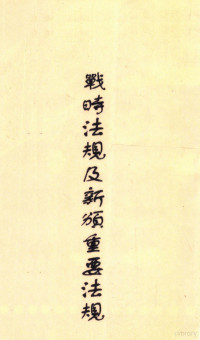 戰時法規及新頒重要法規